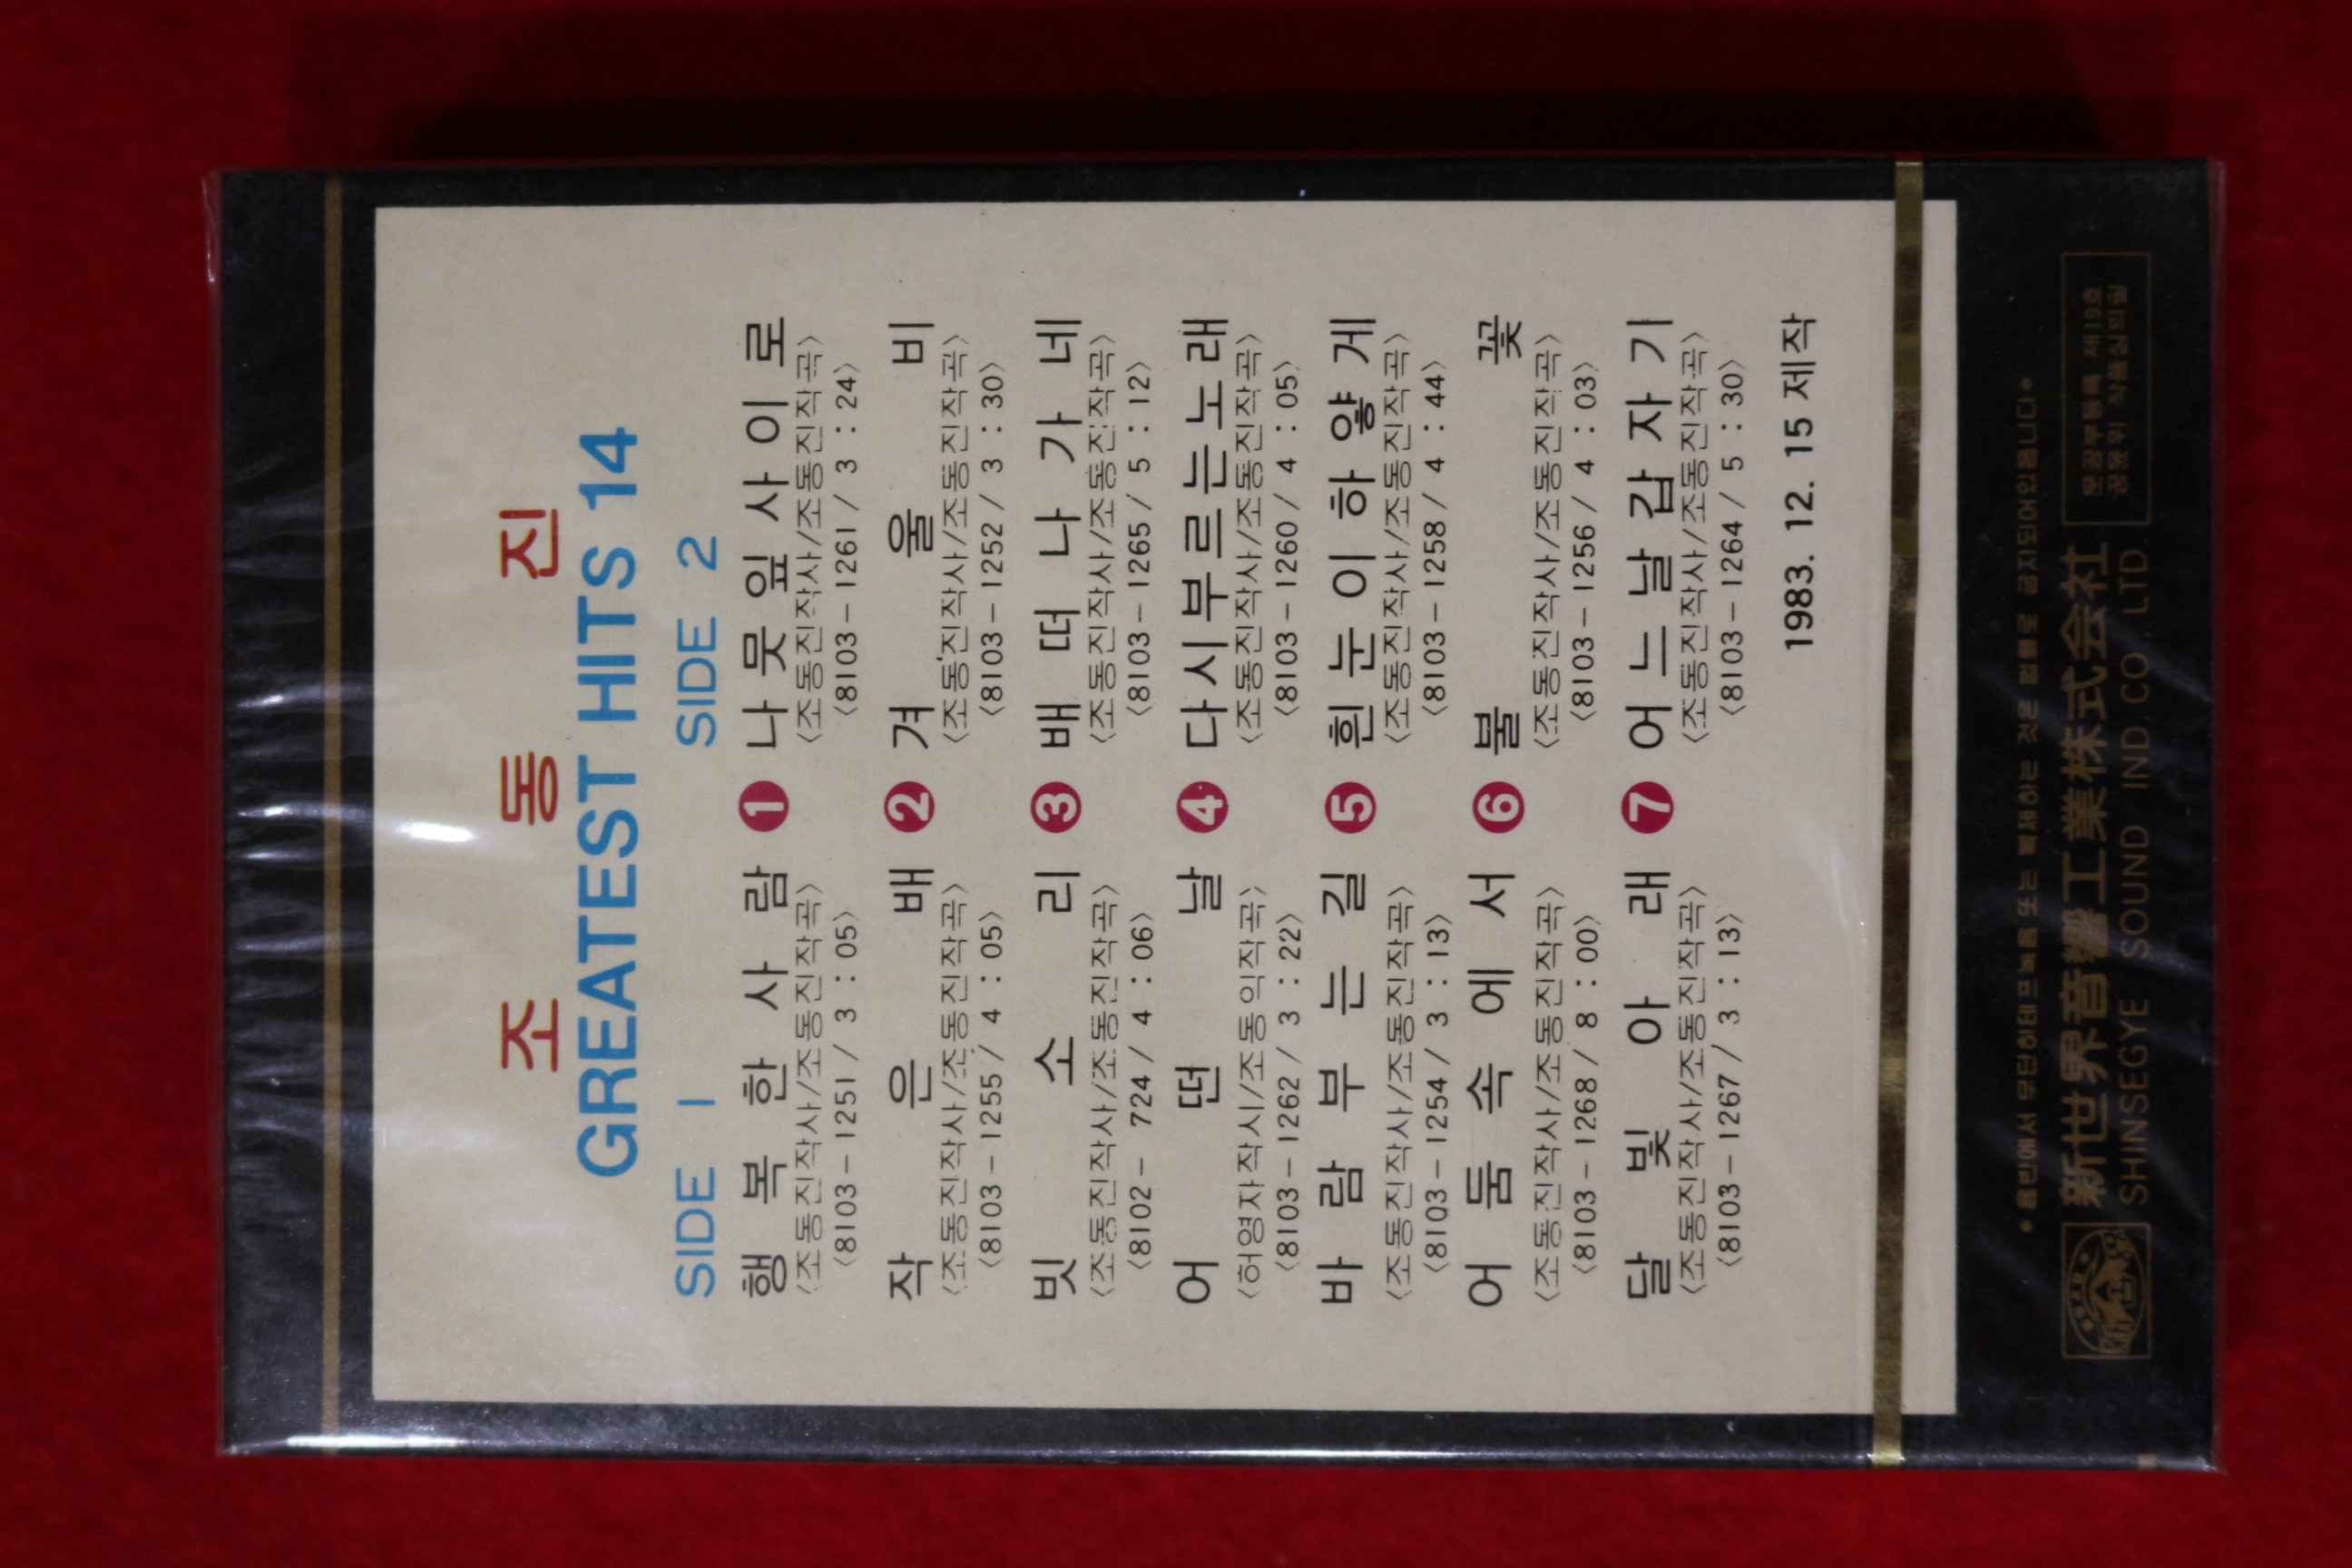 조 동 진
GREATEST HITS 14
SIDE 1 SIDE 2
행 복 한 사 람 1 나 뭇 잎 사 이 로
〈조동진작사/조동진작곡〉 〈조동진작사/조동진작곡〉
〈8103-1251/3:05〉 〈8103-1261/3:24〉
작 은 배 2 겨 울 비
〈조동진작사/조동진작곡〉 〈조동진작사/조동진작곡〉
〈8103-1255/4:05〉 〈8103-1252/3:30〉
빗 소 리 3 배 떠 나 가 네
〈조동진작사/조동진작곡〉 〈조동진작사/조동진작곡〉
〈8102- 724/4:06〉 〈8103-1265/5:12〉
어 떤 날 4 다시부르는노래
〈허영자작시/조동익작곡〉 〈조동진작사/조동진작곡〉
〈8103-1262/3:22〉 〈8103-1260/4:05〉
바 람 부 는 길 5 흰 눈 이 하 얗 게
〈조동진작사/조동진작곡〉 〈조동진작사/조동진작곡〉
〈8103-1254/3:13〉 〈8103-1258/4:44〉
어 둠 속 에 서 6 불 꽃
〈조동진작사/조동진작곡〉 〈조동진작사/조동진작곡〉
〈8103-1268/8:00〉 〈8103-1256/4:03〉
달 빛 아 래 7 어 느 날 갑 자 기
〈조동진작사/조동진작곡〉 〈조동진작사/조동진작곡〉
〈8103-1267/3:13〉 〈8103-1264/5:30〉
1983. 12. 15 제작
*음반에서 무단히테프복음 또는 불제하는 것은 법률로 금지되어있읍니다*
新世界音響工業株式会社 문공부등록 제19호
SHINSEGYE SOUND IND. CO., LTD. 공윤위 작품심의필